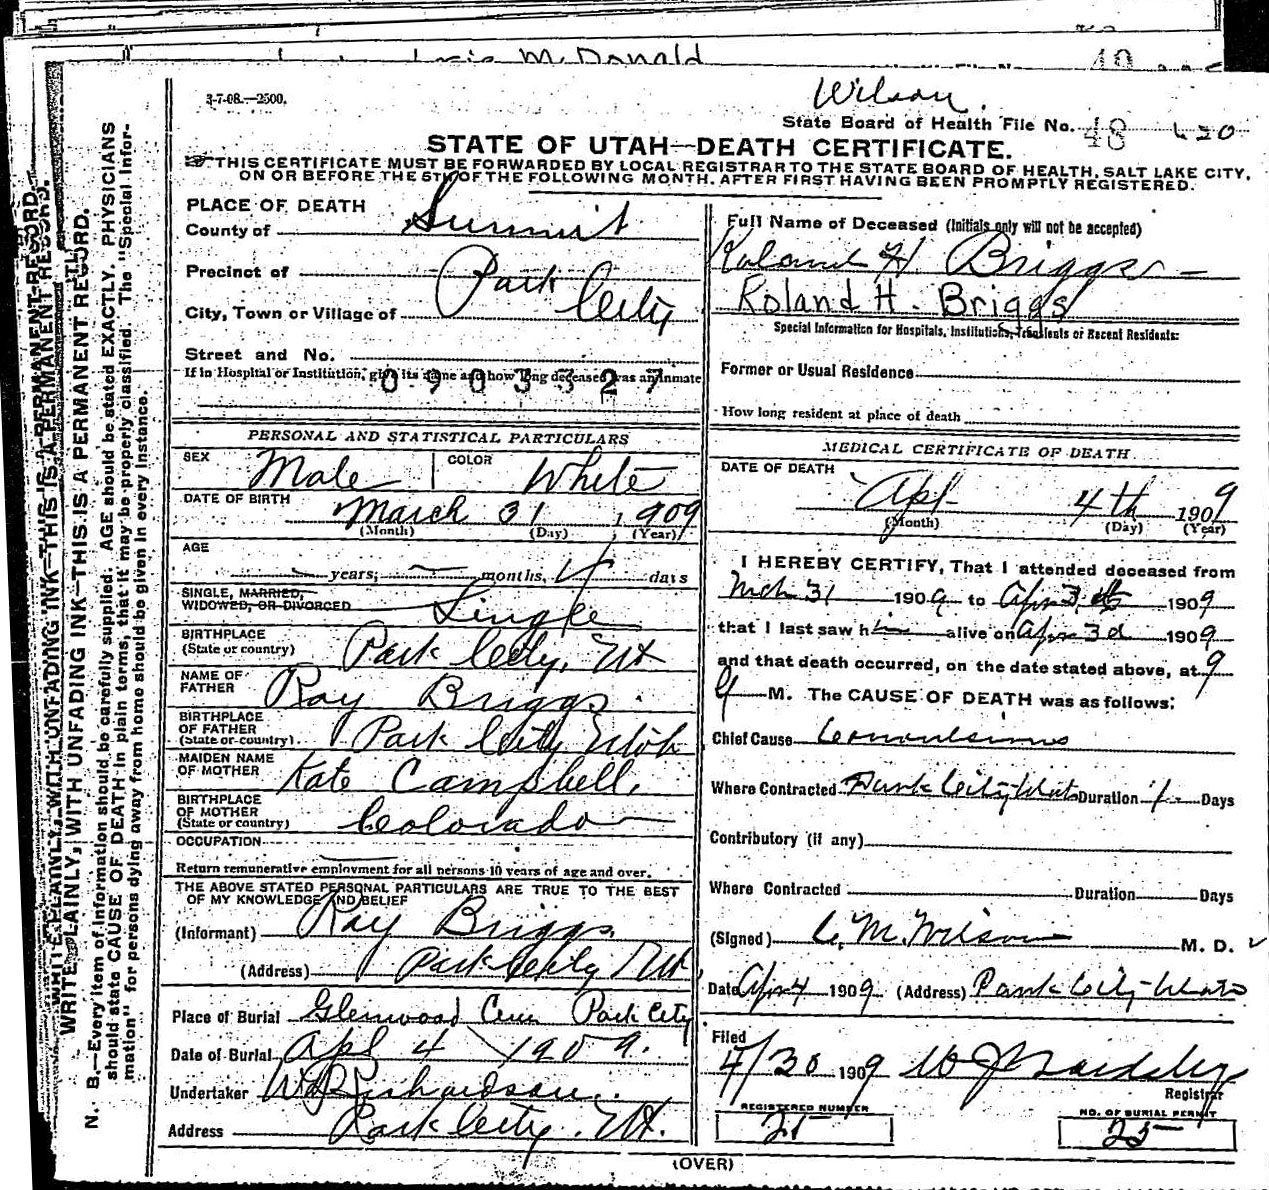 McDonald
Wilson.
3-7-08.—2500.
State Board of Health File No. 48
STATE OF UTAH—DEATH CERTIFICATE.
THIS CERTIFICATE MUST BE FORWARDED BY LOCAL REGISTRAR TO THE STATE BOARD OF HEALTH, SALT LAKE CITY,
ON OR BEFORE THE 5TH OF THE FOLLOWING MONTH, AFTER FIRST HAVING BEEN PROMPTLY REGISTERED.
WRITE PLAINLY, WITH UNFADING INK—THIS IS A PERMANENT RECORD.
WRITE PLAINLY, WITH UNFADING INK—THIS IS A PERMANENT RECORD.
N. B.—Every item of information should be carefully supplied. AGE should be stated EXACTLY. PHYSICIANS
should state CAUSE OF DEATH in plain terms, that it may be properly classified. The "Special Infor-
mation" for persons dying away from home should be given in every instance.
PLACE OF DEATH
County of Summit
Precinct of Park
City, Town or Village of City
Street and No.
If in Hospital or Institution, give its name and how long deceased was an inmate
0903327
PERSONAL AND STATISTICAL PARTICULARS
SEX Male COLOR White
DATE OF BIRTH March 31, 1909
(Month) (Day) (Year)
AGE — years, — months, 4 days
SINGLE, MARRIED,
WIDOWED, OR DIVORCED Single
BIRTHPLACE
(State or country) Park City, Ut
NAME OF
FATHER Ray Briggs
BIRTHPLACE
OF FATHER
(State or country) Park City Utah
MAIDEN NAME
OF MOTHER Kate Campbell.
BIRTHPLACE
OF MOTHER
(State or country) Colorado
OCCUPATION
Return remunerative employment for all persons 10 years of age and over.
THE ABOVE STATED PERSONAL PARTICULARS ARE TRUE TO THE BEST
OF MY KNOWLEDGE AND BELIEF
(Informant) Ray Briggs.
(Address) Park City Ut.
Place of Burial Glenwood Cem Park City
Date of Burial Apl 4 1909.
Undertaker W Richardson.
Address Park City. Ut.
Full Name of Deceased (Initials only will not be accepted)
Roland H Briggs
Roland H. Briggs
Special Information for Hospitals, Institutions, Transients or Recent Residents:
Former or Usual Residence
How long resident at place of death
MEDICAL CERTIFICATE OF DEATH
DATE OF DEATH
Apl 4th 1909
(Month) (Day) (Year)
I HEREBY CERTIFY, That I attended deceased from
Mch 31 1909 to Apr 3 1909
that I last saw him alive on Apr 3d 1909
and that death occurred, on the date stated above, at 9
M. The CAUSE OF DEATH was as follows:
Chief Cause Convulsions
Where Contracted Park City Utah Duration 1 Days
Contributory (if any)
Where Contracted Duration Days
(Signed) C. M. Wilson M. D.
Date Apr 4 1909 (Address) Park City Utah
Filed
4/30 1909 W J
Registrar
REGISTERED NUMBER
25
NO. OF BURIAL PERMIT
25
(OVER)